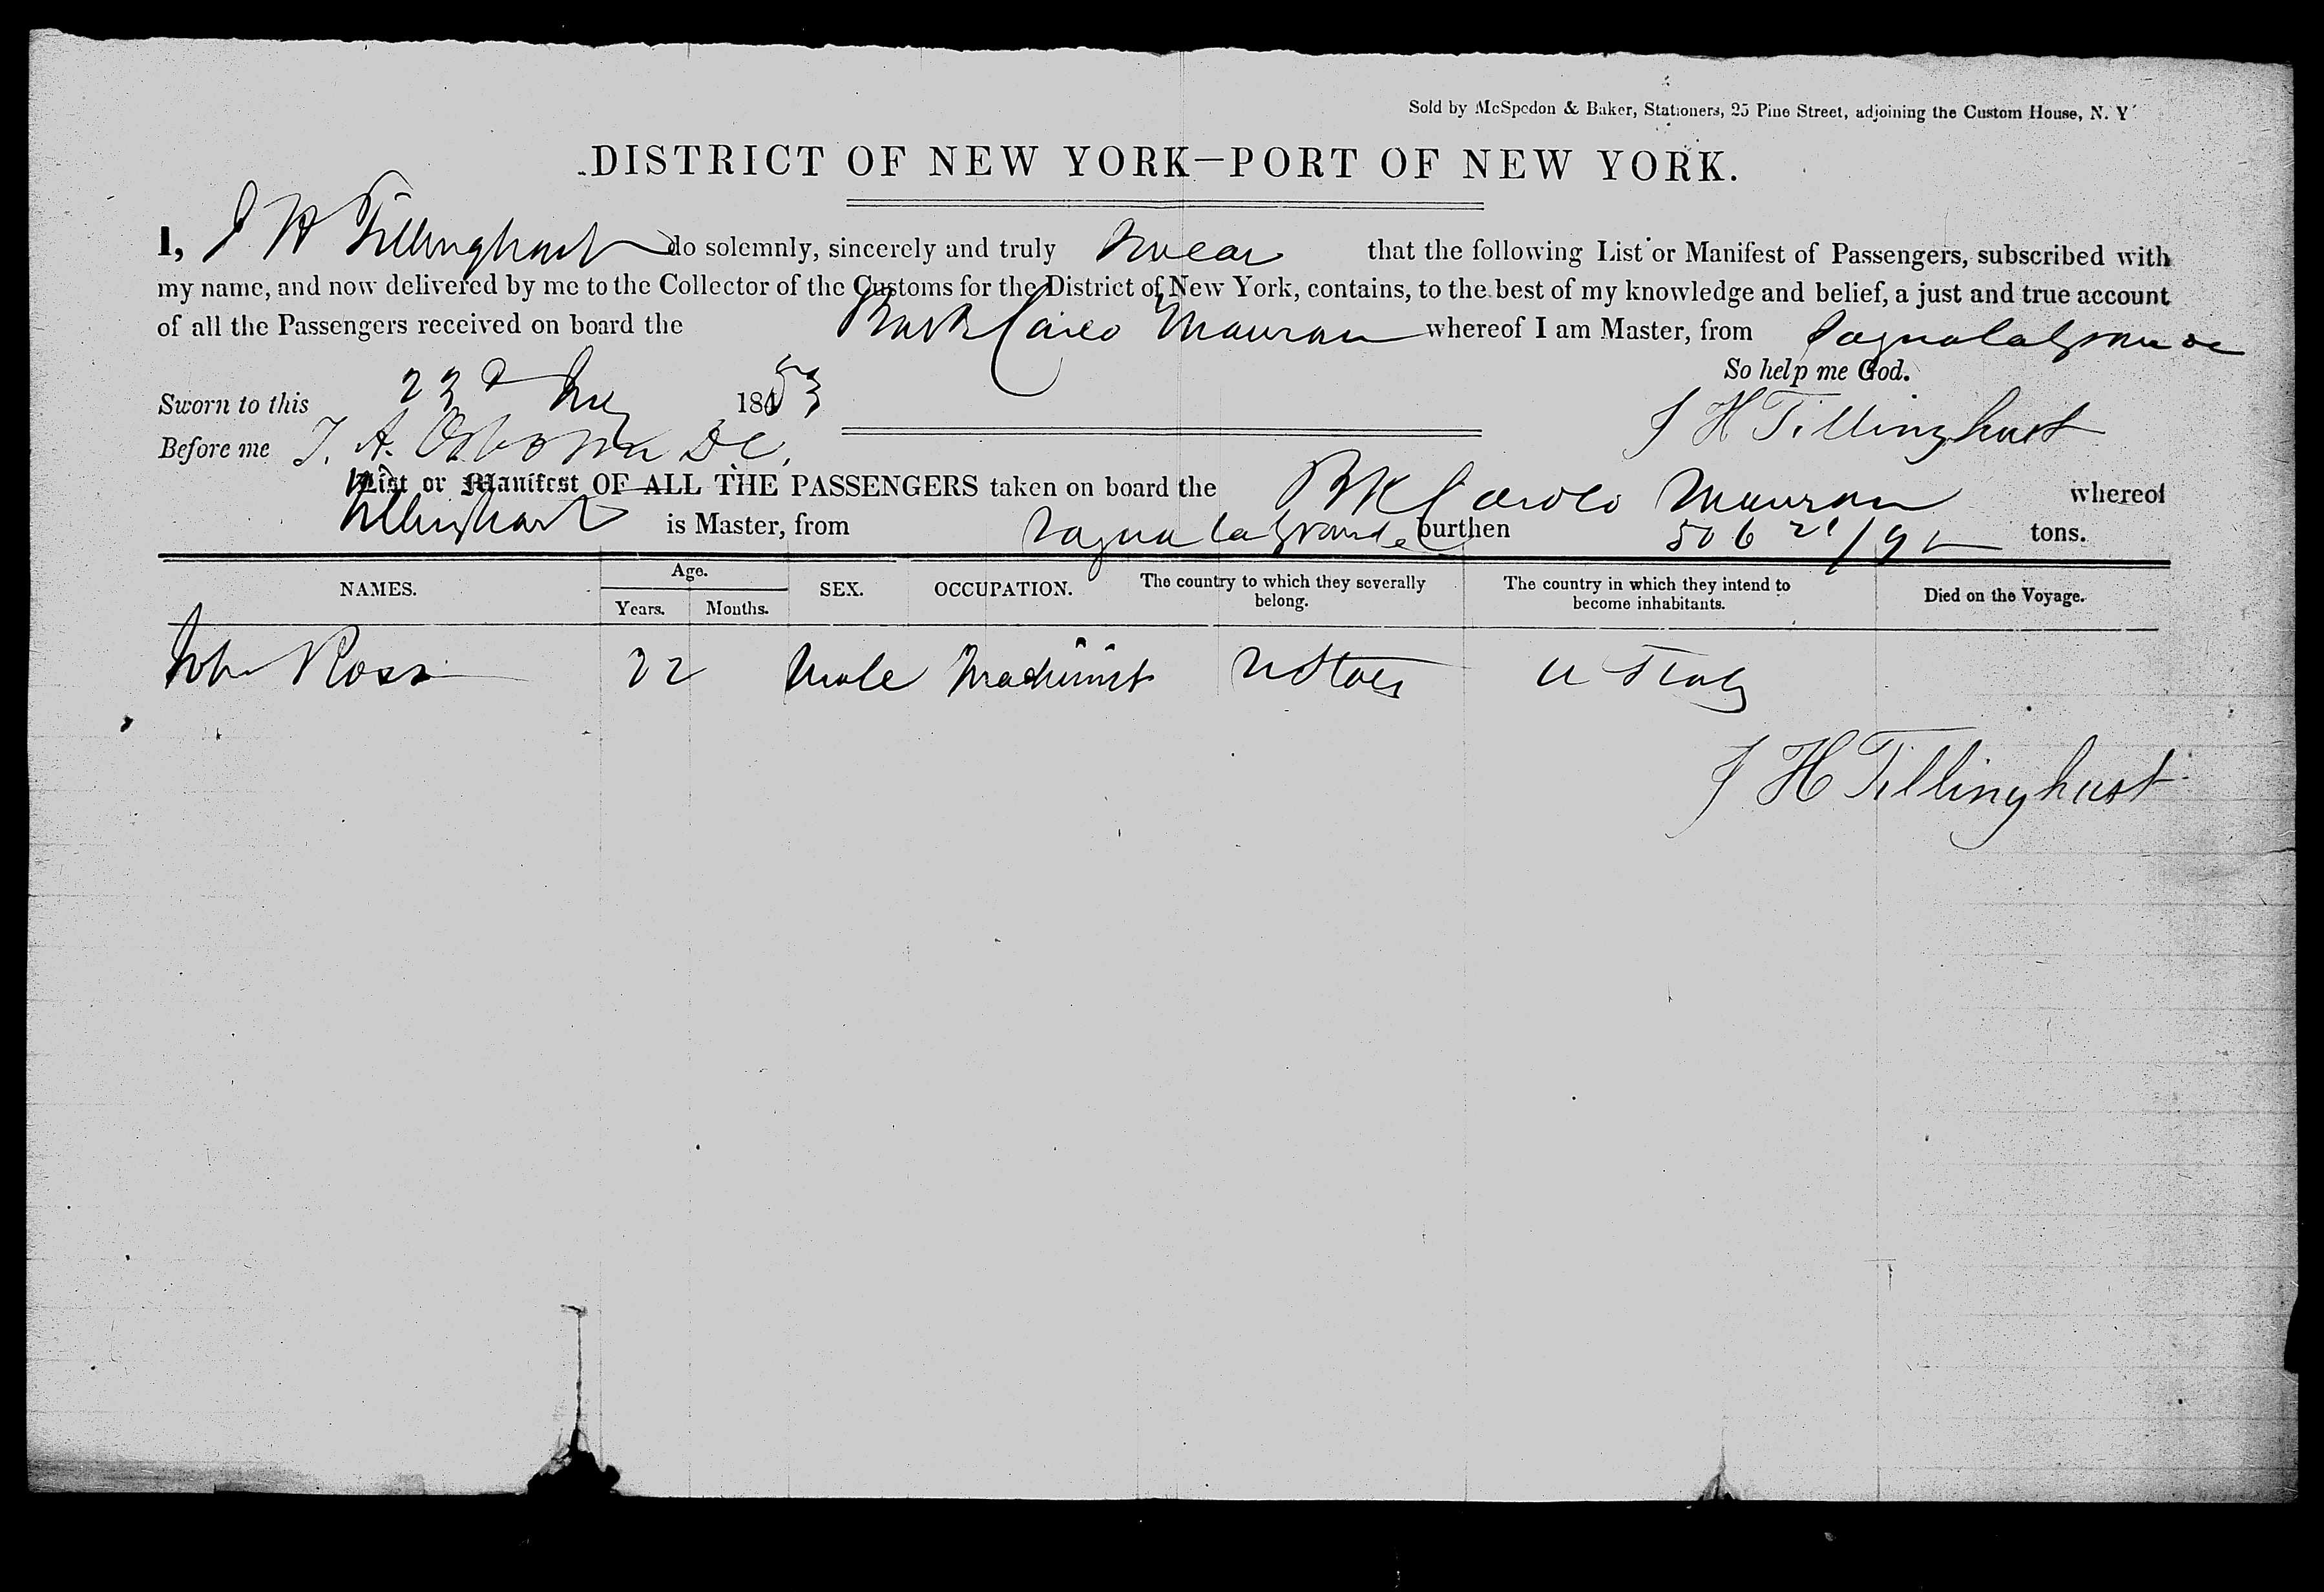 Sold by McSpedon & Baker, Stationers, 25 Pine Street, adjoining the Custom House, N. Y
DISTRICT OF NEW YORK—PORT OF NEW YORK.
I, J H Tillinghast do solemnly, sincerely and truly swear that the following List or Manifest of Passengers, subscribed with
my name, and now delivered by me to the Collector of the Customs for the District of New York, contains, to the best of my knowledge and belief, a just and true account
of all the Passengers received on board the Bark Carlo Mauran whereof I am Master, from Sagua la Grande
So help me God.
Sworn to this 23d 1853
J H Tillinghast
Before me J. A. Osborn DC,
List or Manifest OF ALL THE PASSENGERS taken on board the Bk Carlo Mauran whereof
Tillinghast is Master, from Sagua la Grande burthen 506 21/95 tons.
NAMES. Age. Years. Months. SEX. OCCUPATION. The country to which they severally belong. The country in which they intend to become inhabitants. Died on the Voyage.
John Ross 22 Male Machinist U States U States
J H Tillinghast